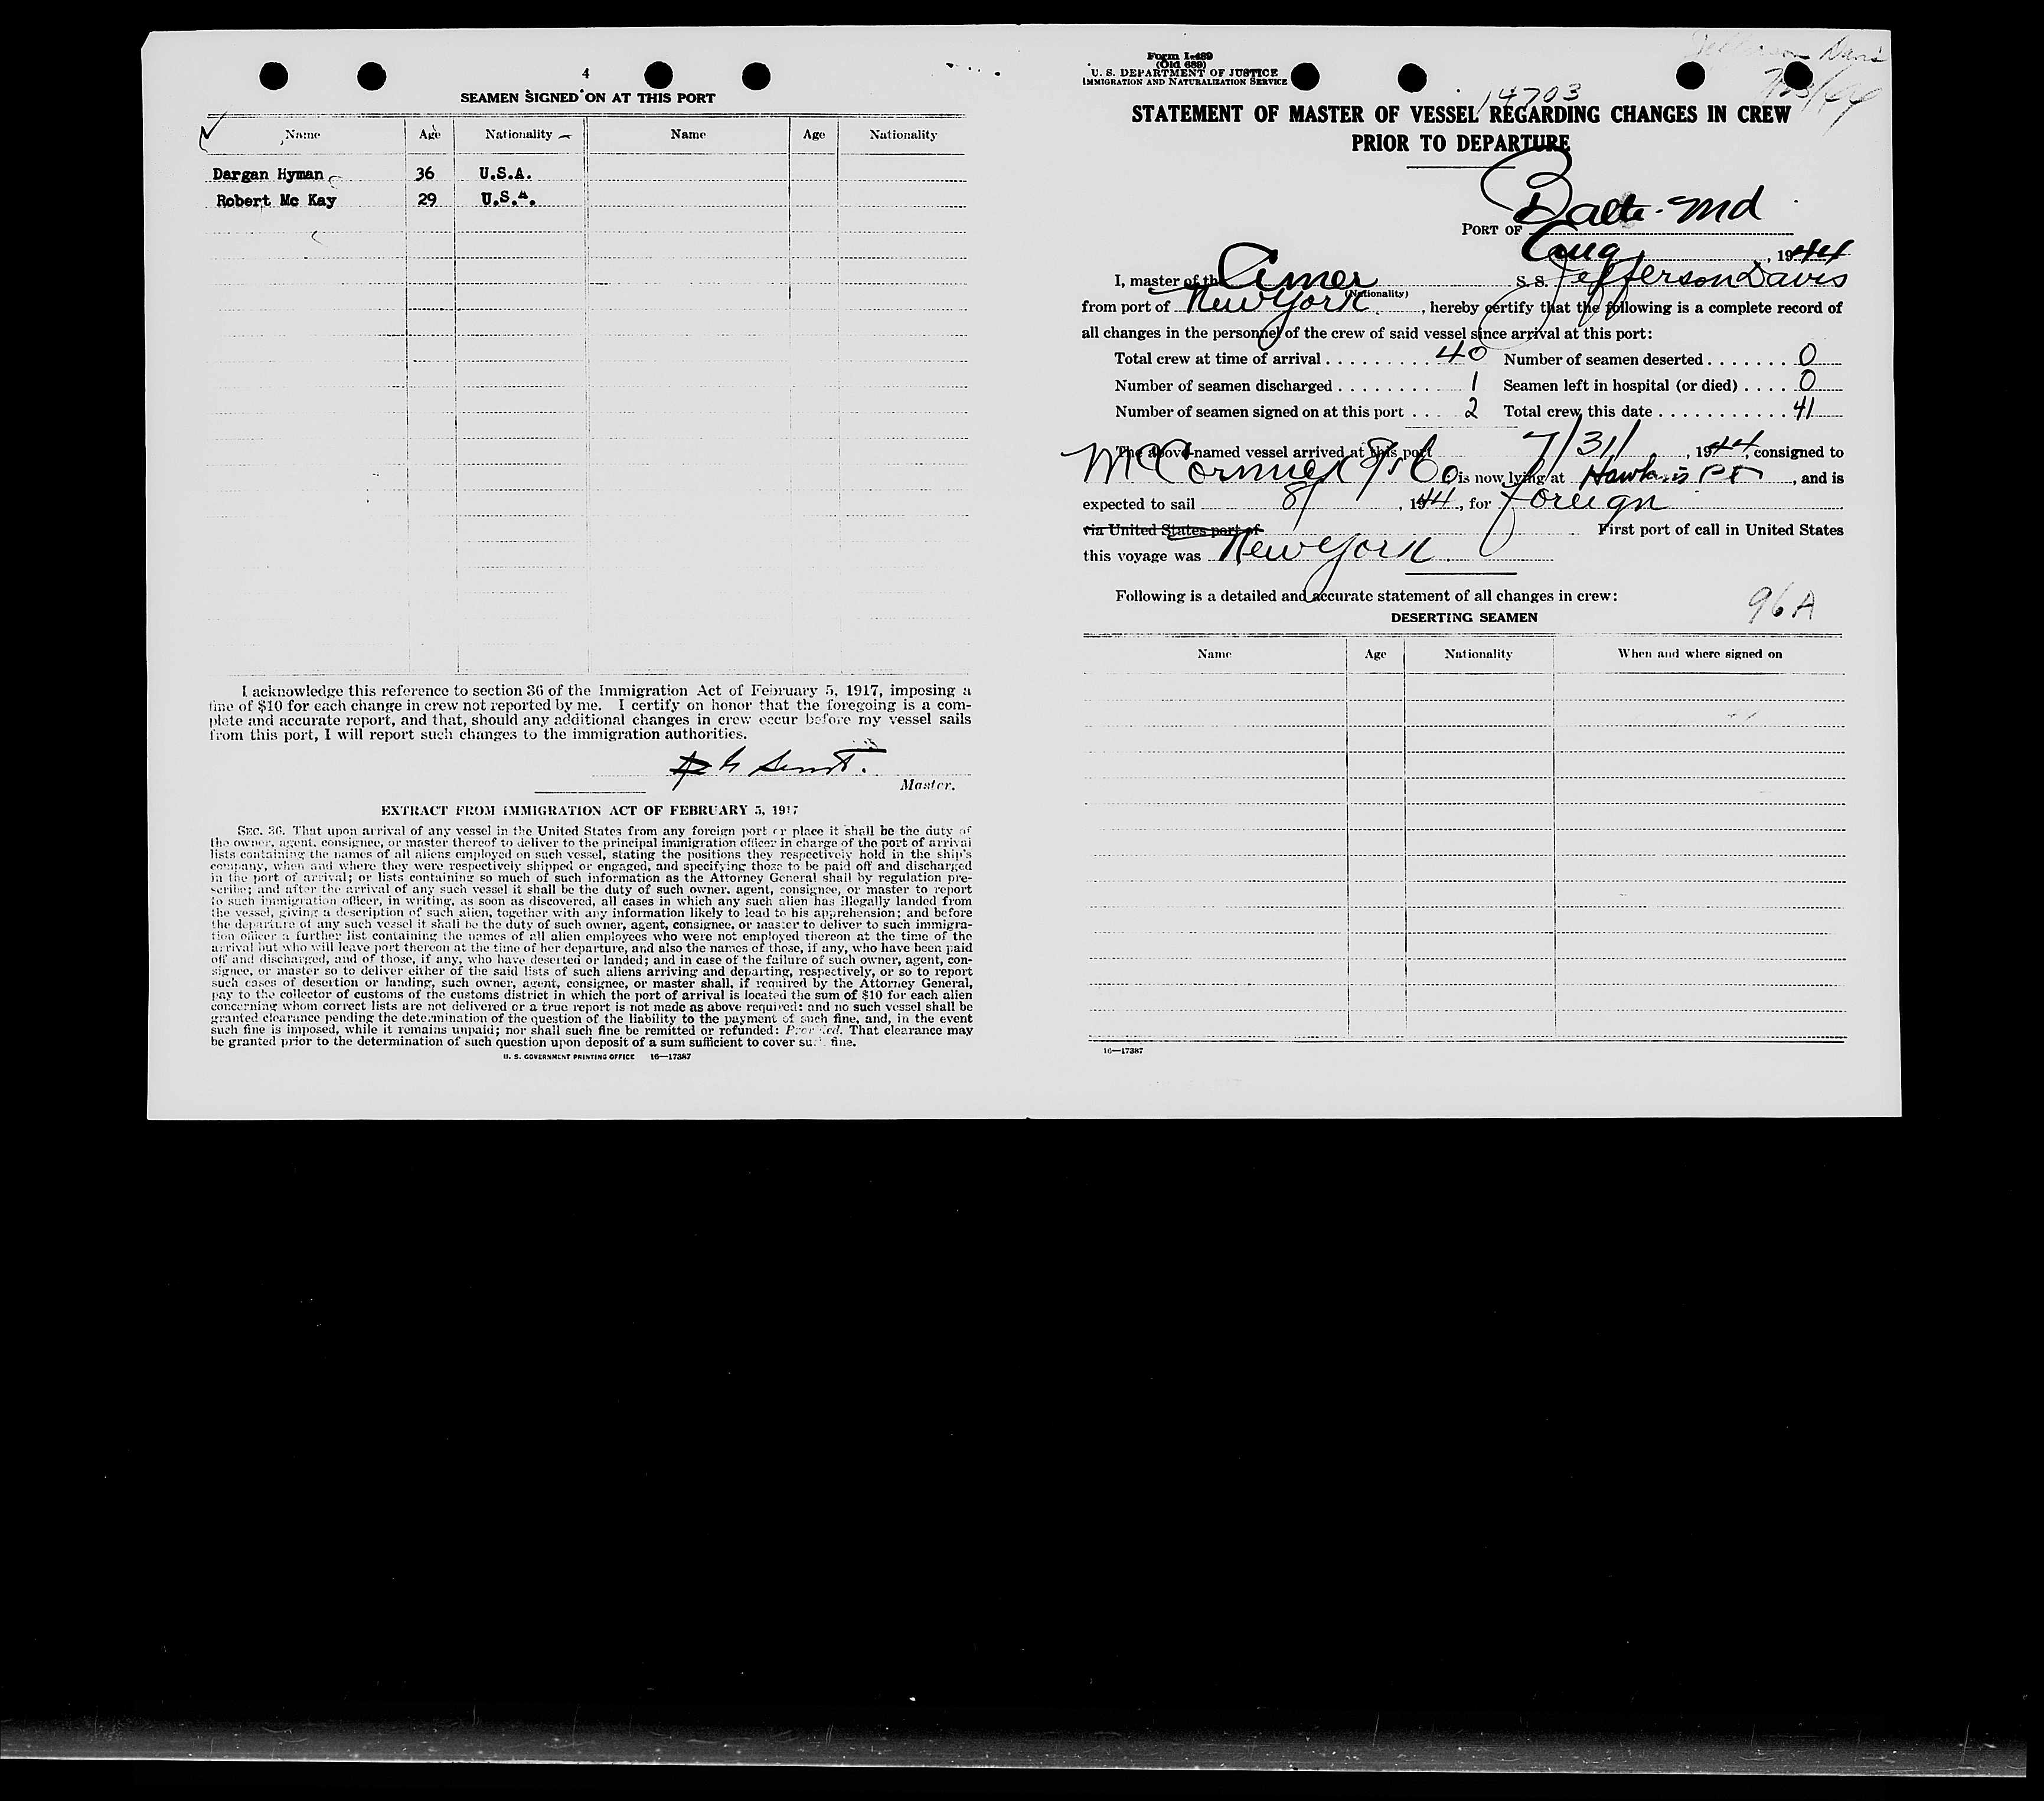 4
SEAMEN SIGNED ON AT THIS PORT
Name Age Nationality Name Age Nationality
Dargan Hyman 36 U.S.A.
Robert Mc Kay 29 U.S.A.
I acknowledge this reference to section 36 of the Immigration Act of February 5, 1917, imposing a
fine of $10 for each change in crew not reported by me. I certify on honor that the foregoing is a com-
plete and accurate report, and that, should any additional changes in crew occur before my vessel sails
from this port, I will report such changes to the immigration authorities.
Master.
EXTRACT FROM IMMIGRATION ACT OF FEBRUARY 5, 1917
SEC. 36. That upon arrival of any vessel in the United States from any foreign port or place it shall be the duty of
the owner, agent, consignee, or master thereof to deliver to the principal immigration officer in charge of the port of arrival
lists containing the names of all aliens employed on such vessel, stating the positions they respectively hold in the ship's
company, when and where they were respectively shipped or engaged, and specifying those to be paid off and discharged
in the port of arrival; or lists containing so much of such information as the Attorney General shall by regulation pre-
scribe; and after the arrival of any such vessel it shall be the duty of such owner, agent, consignee, or master to report
to such immigration officer, in writing, as soon as discovered, all cases in which any such alien has illegally landed from
the vessel, giving a description of such alien, together with any information likely to lead to his apprehension; and before
the departure of any such vessel it shall be the duty of such owner, agent, consignee, or master to deliver to such immigra-
tion officer a further list containing the names of all alien employees who were not employed thereon at the time of the
arrival but who will leave port thereon at the time of her departure, and also the names of those, if any, who have been paid
off and discharged, and of those, if any, who have deserted or landed; and in case of the failure of such owner, agent, con-
signee, or master so to deliver either of the said lists of such aliens arriving and departing, respectively, or so to report
such cases of desertion or landing, such owner, agent, consignee, or master shall, if required by the Attorney General,
pay to the collector of customs of the customs district in which the port of arrival is located the sum of $10 for each alien
concerning whom correct lists are not delivered or a true report is not made as above required; and no such vessel shall be
granted clearance pending the determination of the question of the liability to the payment of such fine, and, in the event
such fine is imposed, while it remains unpaid; nor shall such fine be remitted or refunded: Provided, That clearance may
be granted prior to the determination of such question upon deposit of a sum sufficient to cover such fine.
U. S. GOVERNMENT PRINTING OFFICE 16—17387
Form I-489
(Old 689)
U. S. DEPARTMENT OF JUSTICE
IMMIGRATION AND NATURALIZATION SERVICE
Jefferson Davis
14703
STATEMENT OF MASTER OF VESSEL REGARDING CHANGES IN CREW
PRIOR TO DEPARTURE
PORT OF Balto. Md
Aug, 1944
I, master of the Amer S. S. Jefferson Davis
(Nationality)
from port of New York, hereby certify that the following is a complete record of
all changes in the personnel of the crew of said vessel since arrival at this port:
Total crew at time of arrival 40 Number of seamen deserted 0
Number of seamen discharged 1 Seamen left in hospital (or died) 0
Number of seamen signed on at this port 2 Total crew this date 41
The above-named vessel arrived at this port 7/31/, 1944, consigned to
McCormick SS Co is now lying at Hawkins Pt, and is
expected to sail 8/, 1944, for foreign
via United States port of First port of call in United States
this voyage was New York
Following is a detailed and accurate statement of all changes in crew:
96A
DESERTING SEAMEN
Name Age Nationality When and where signed on
16—17387